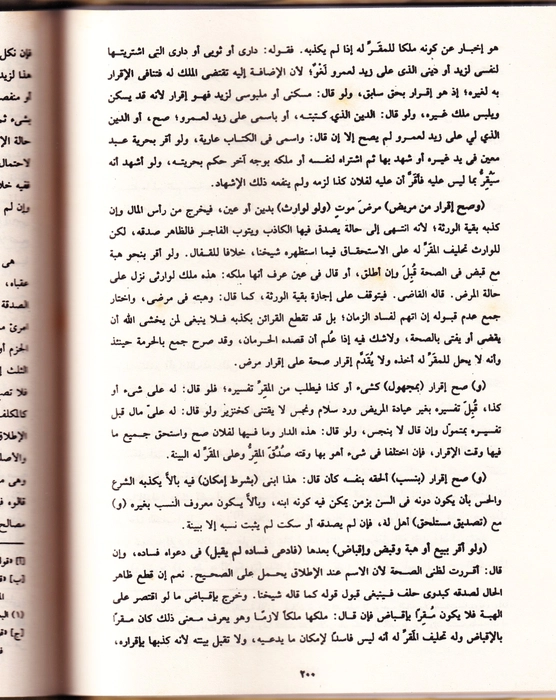 هو إخبار عن كونه ملكا للمقرّ له إذا لم يكذبه. فقوله: دارى أو ثوبى أو دارى التى اشتريتها
لنفسى لزيد أو دينى الذى على زيد لعمرو لَغْوٌ؛ لأن الإضافة إليه تقتضى الملك له فتنافى الإقرار
به لغيره؛ إذ هو إقرار بحق سابق، ولو قال: مسكنى أو ملبوسى لزيد فهو إقرار لأنه قد يسكن
ويلبس ملك غيره، ولو قال: الدين الذي كتبته، أو باسمى على زيد لعمرو؛ صح، أو الدين
الذي لي على زيد لعمرو لم يصح إلا إن قال: واسمى فى الكتاب عارية، ولو أقر بحرية عبد
معين فى يد غيره أو شهد بها ثم اشتراه لنفسه أو ملكه بوجه آخر حكم بحريته، ولو أشهد أنه
سَيُقِرُّ بما ليس عليه فأقرّ أن عليه لفلان كذا لزمه ولم ينفعه ذلك الإشهاد.
(وصح إقرار من مريض) مرضَ موتٍ (ولو لوارث) بدين أو عين، فيخرج من رأس المال وإن
كذبه بقية الورثة؛ لأنه انتهى إلى حالة يصدق فيها الكاذب ويتوب الفاجر فالظاهر صدقه، لكن
للوارث تحليف المقرّ له على الاستحقاق فيما استظهره شيخنا، خلافا للقفال. ولو أقر بنحو هبة
مع قبض فى الصحة قُبِلَ وإن أطلق، أو قال فى عين عرف أنها ملكه: هذه ملك لوارثى نزل على
حالة المرض. قاله القاضى. فيتوقف على إجازة بقية الورثة، كما قال: وهبته فى مرضى، واختار
جمع عدم قبوله إن اتهم لفساد الزمان؛ بل قد تقطع القرائن بكذبه فلا ينبغى لمن يخشى الله أن
يقضى أو يفتى بالصحة، ولاشك فيه إذا عُلم أن قصده الحرمان، وقد صرح جمع بالحرمة حينئذ
وأنه لا يحل للمقرّ له أخذه ولا يُقَدَّم إقرار صحة على إقرار مرض.
(و) صح إقرار (بمجهول) كشىء أو كذا فيطلب من المقِرّ تفسيره؛ فلو قال: له على شىء أو
كذا، قُبِلَ تفسيره بغير عيادة المريض ورد سلام ونجس لا يقتنى كخنزير ولو قال: له علىّ مال قبل
تفسيره بمتمول وإن قال لا بنجس، ولو قال: هذه الدار وما فيها لفلان صح واستحق جميع ما
فيها وقت الإقرار، فإن اختلفا فى شىء أهو بها وقته صُدِّقَ المقِرُّ وعلى المقَرِّ له البينة.
(و) صح إقرار (بنسب) ألحقه بنفسه كأن قال: هذا ابنى (بشرط إمكان) فيه بألاَّ يكذبه الشرع
والحس بأن يكون دونه فى السن بزمن يمكن فيه كونه ابنه، وبألاَّ يكون معروف النسب بغيره (و)
مع (تصديق مستلحق) أهل له، فإن لم يصدقه أو سكت لم يثبت نسبه إلا ببينة.
(ولو أقر ببيع أو هبة وقبض وإقباض) بعدها (فادعى فساده لم يقبل) فى دعواه فساده، وإن
قال: أقررت لظنى الصحة لأن الاسم عند الإطلاق يحمل على الصحيح. نعم إن قطع ظاهر
الحال لصدقه كبدوى جلف فينبغى قبول قوله كما قاله شيخنا. وخرج بإقباض ما لو اقتصر على
الهبة فلا يكون مُقِرّا بإقباض فإن قال: ملكها ملكاً لازمًا وهو يعرف معنى ذلك كان مقرًا
بالإقباض وله تحليف المقَرّ له أنه ليس فاسدًا لإمكان ما يدعيه، ولا تقبل بينته لأنه كذبها بإقراره،
٢٠٠